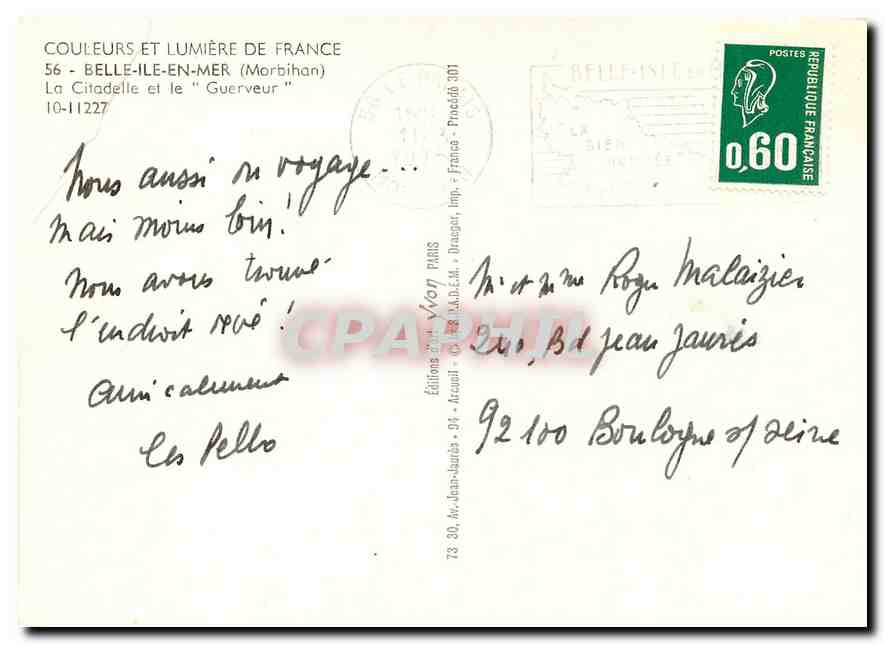 COULEURS ET LUMIÈRE DE FRANCE
56 - BELLE-ILE-EN-MER (Morbihan)
La Citadelle et le " Guerveur "
10-11227
Nous aussi on voyage...
mais moins loin !
Nous avons trouvé
l'endroit rêvé !
Amicalement
les Pello
Éditions d'art Yvon PARIS
73 30, Av. Jean-Jaurès - 94 - Arcueil - C.A.P. - Draeger, Imp. - France - Procédé 301
BELLE-ISLE en
LA
BIEN
POSTES
REPUBLIQUE FRANÇAISE
0,60
Mr et Mme Roger Malaizier
240, Bd Jean Jaurès
92100 Boulogne s/ Seine
CPAPHIL